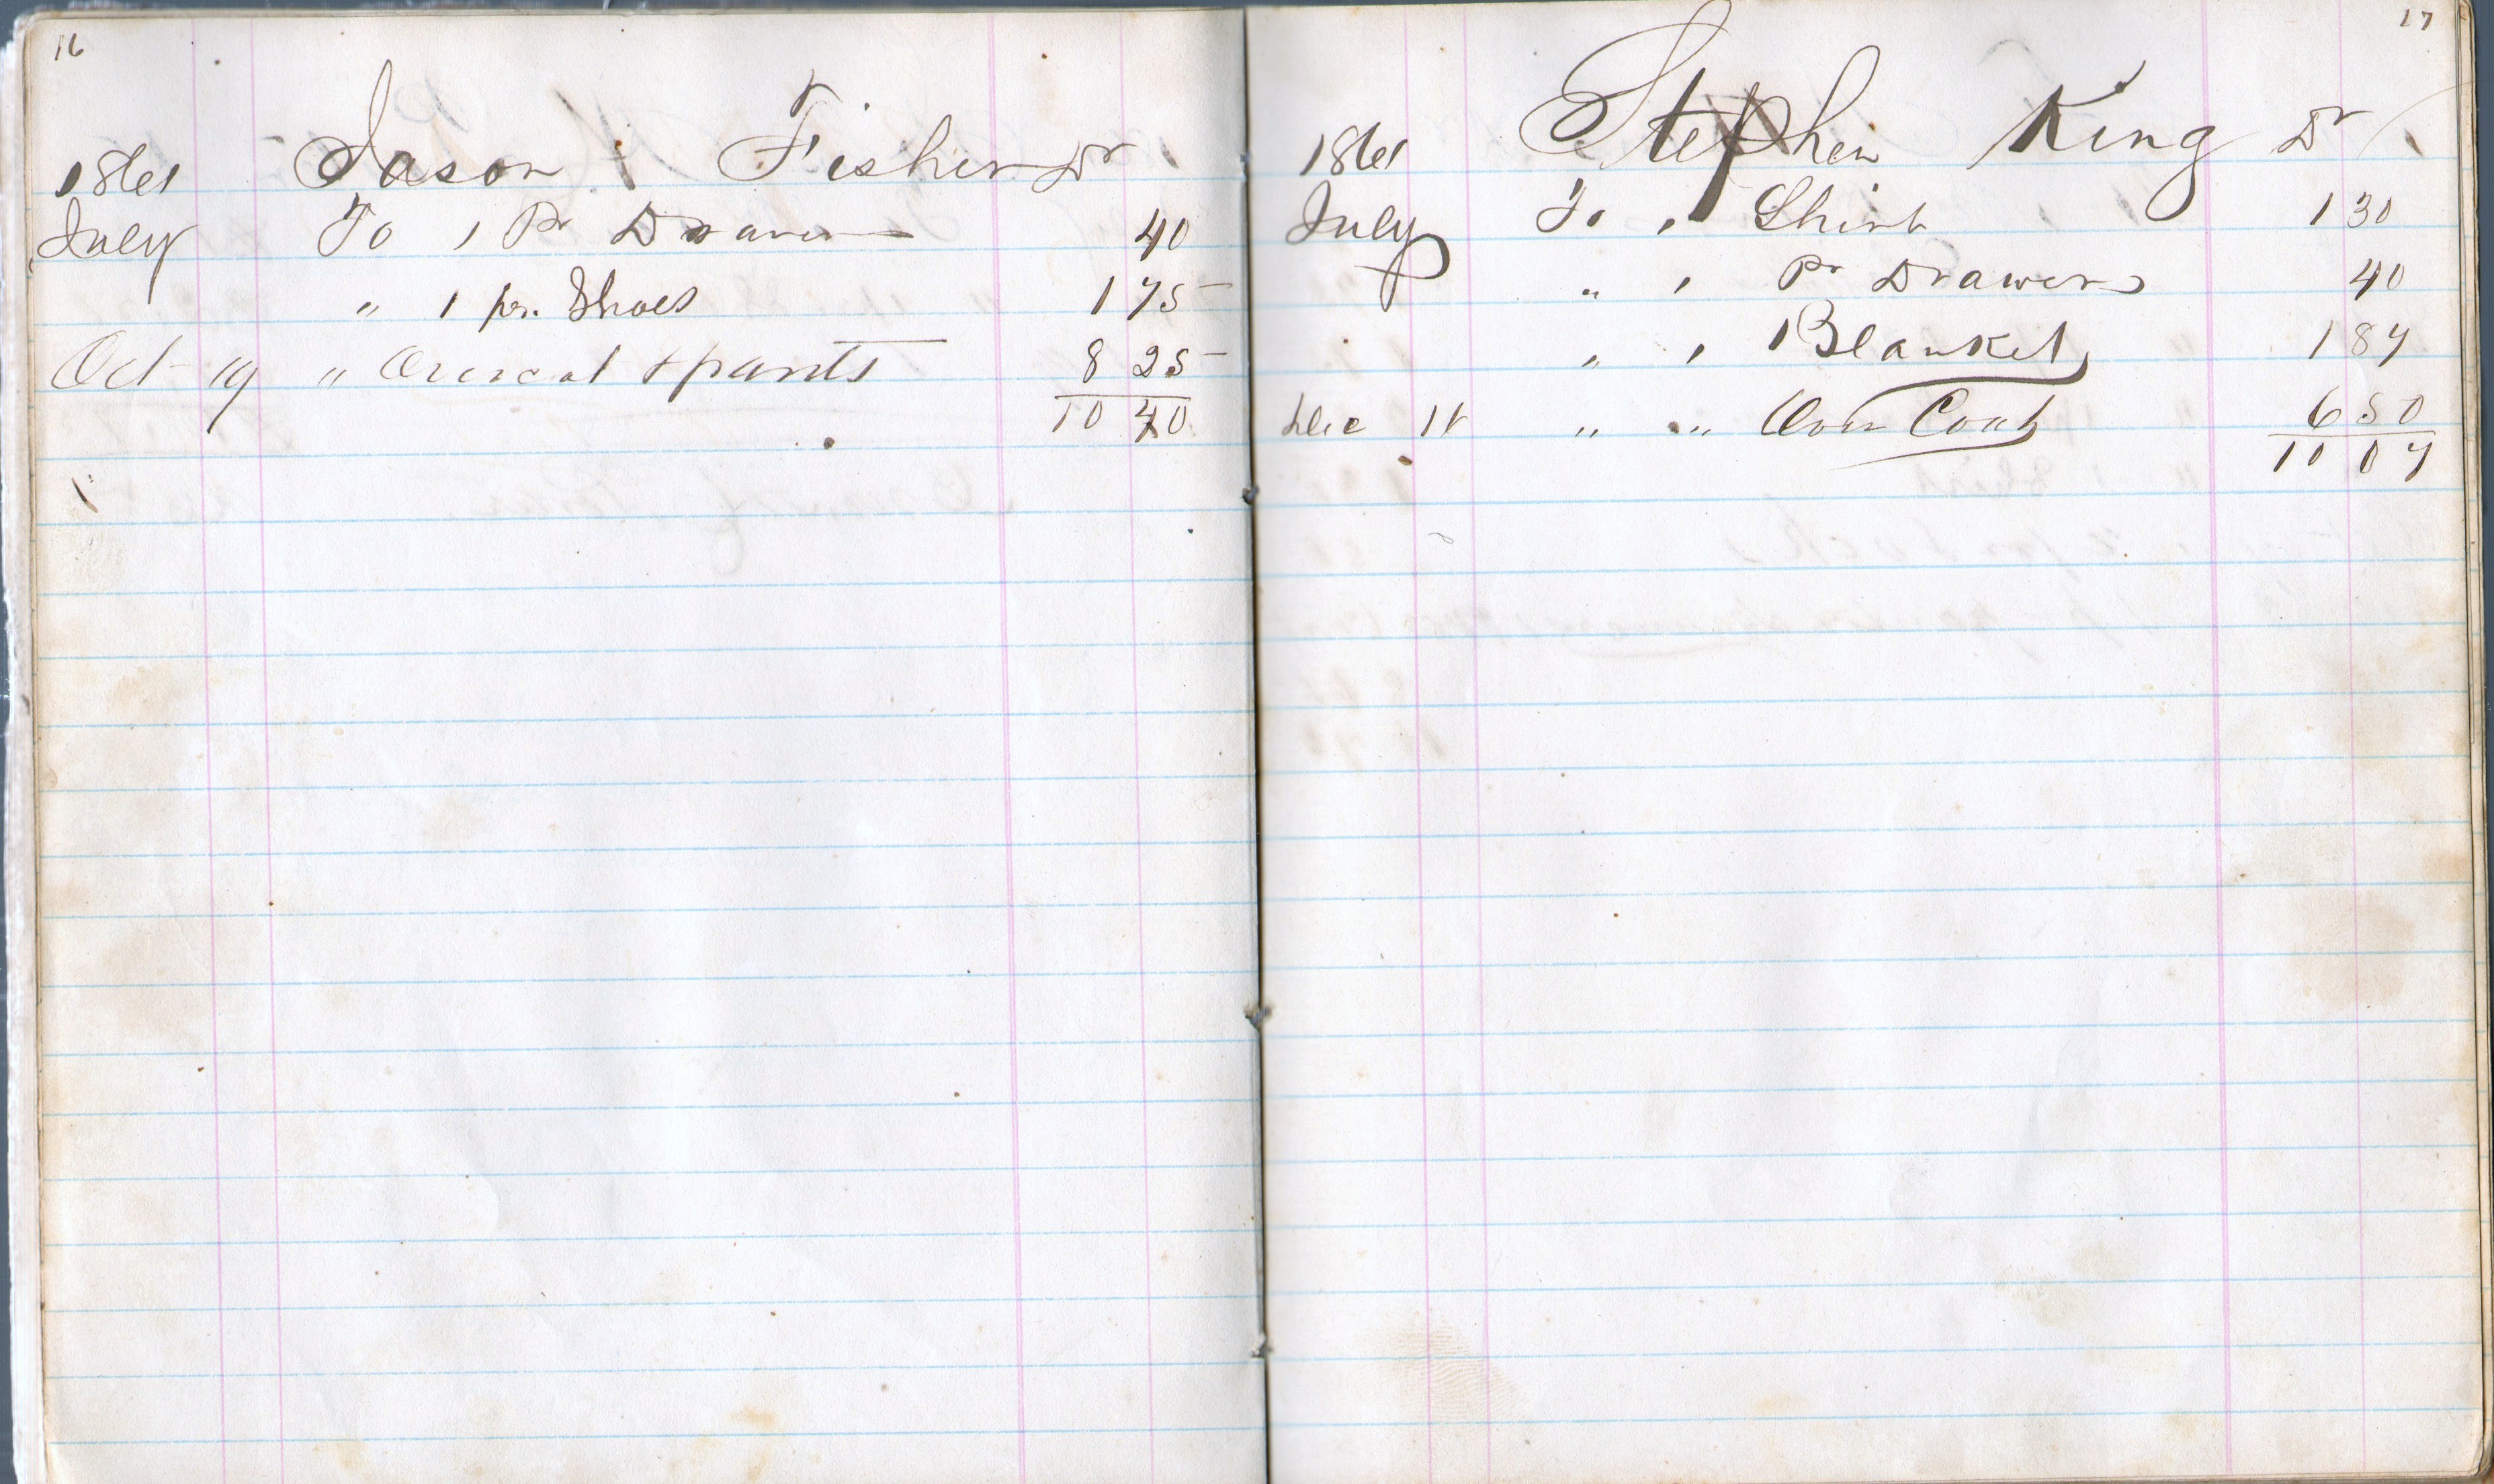 16
Jason Fisher Dr
1861
July To 1 Pr Drawers 40
" 1 pr. Shoes 1 75
Oct 19 " Overcoat & pants 8 25
10 40
17
Stephen King Dr
1861
July To 1 Shirt 1 30
" 1 Pr Drawers 40
" 1 Blanket 1 87
Dec " " Over Coat 6 50
10 07